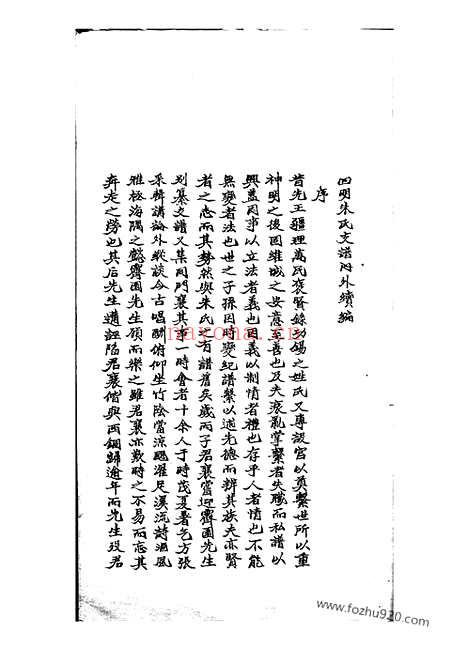 四明朱氏支譜內外續編
序
昔先王疆理萬民褒賢錄功錫之姓氏又專設官以奠繫世所以重
神明之後固維城之安意至善也及夫衰亂掌繫者失職而私譜以
興蓋因事以立法者義也因義以制情者禮也存乎人者情也不能
無變者法也世之子孫因時變紀譜繫以追先德而辨其族夫亦賢
者之志而其勢然與朱氏之有譜舊矣歲丙子君襄當迎霽園先生
別纂支譜又集同門襄其事一時會者十余人于時茂夏暑乞方張
采輯講論外縱談今古唱酬俯仰坐竹陰當涼颸濯足溪流詩酒風
雅極海隅之懿霽園先生顧而樂之雖君襄亦歎時之不易而忘其
奔走之勞也其后先生遘誣陷君襄偕與西鋼歸逾年而先生歿君
nayona.cn
www.fozhu920.com